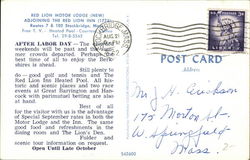 RED LION MOTOR LODGE (NEW)
ADJOINING THE RED LION INN (1773)
Routes 7 & 102 Stockbridge, Mass.
Free T. V. Heated Pool
Tel.
AFTER LABOR DAY – The
weekends will be past and the
mer crowds departed. Perhaps
best time of all to enjoy the Berk-
shires is ahead.
Still plenty to
do – good golf and tennis and The
Red Lion Inn Heated Pool. All his-
toric and scenic places and two race
events at Great Barrington and Han-
cock with parimutual betting are also
at hand.
Best of all
for the visitor with us is the advantage
of Special September rates in both the
Motor Lodge and the Inn. The same
good food and refreshments in the
dining room and The Lion's Den.
Folder and
scenic tour information on request.
Open Until Late October
AUG 21
PM
POST CARD
Address
Mr J H Erickson
75 Morton St.
W. Springfield
Mass.